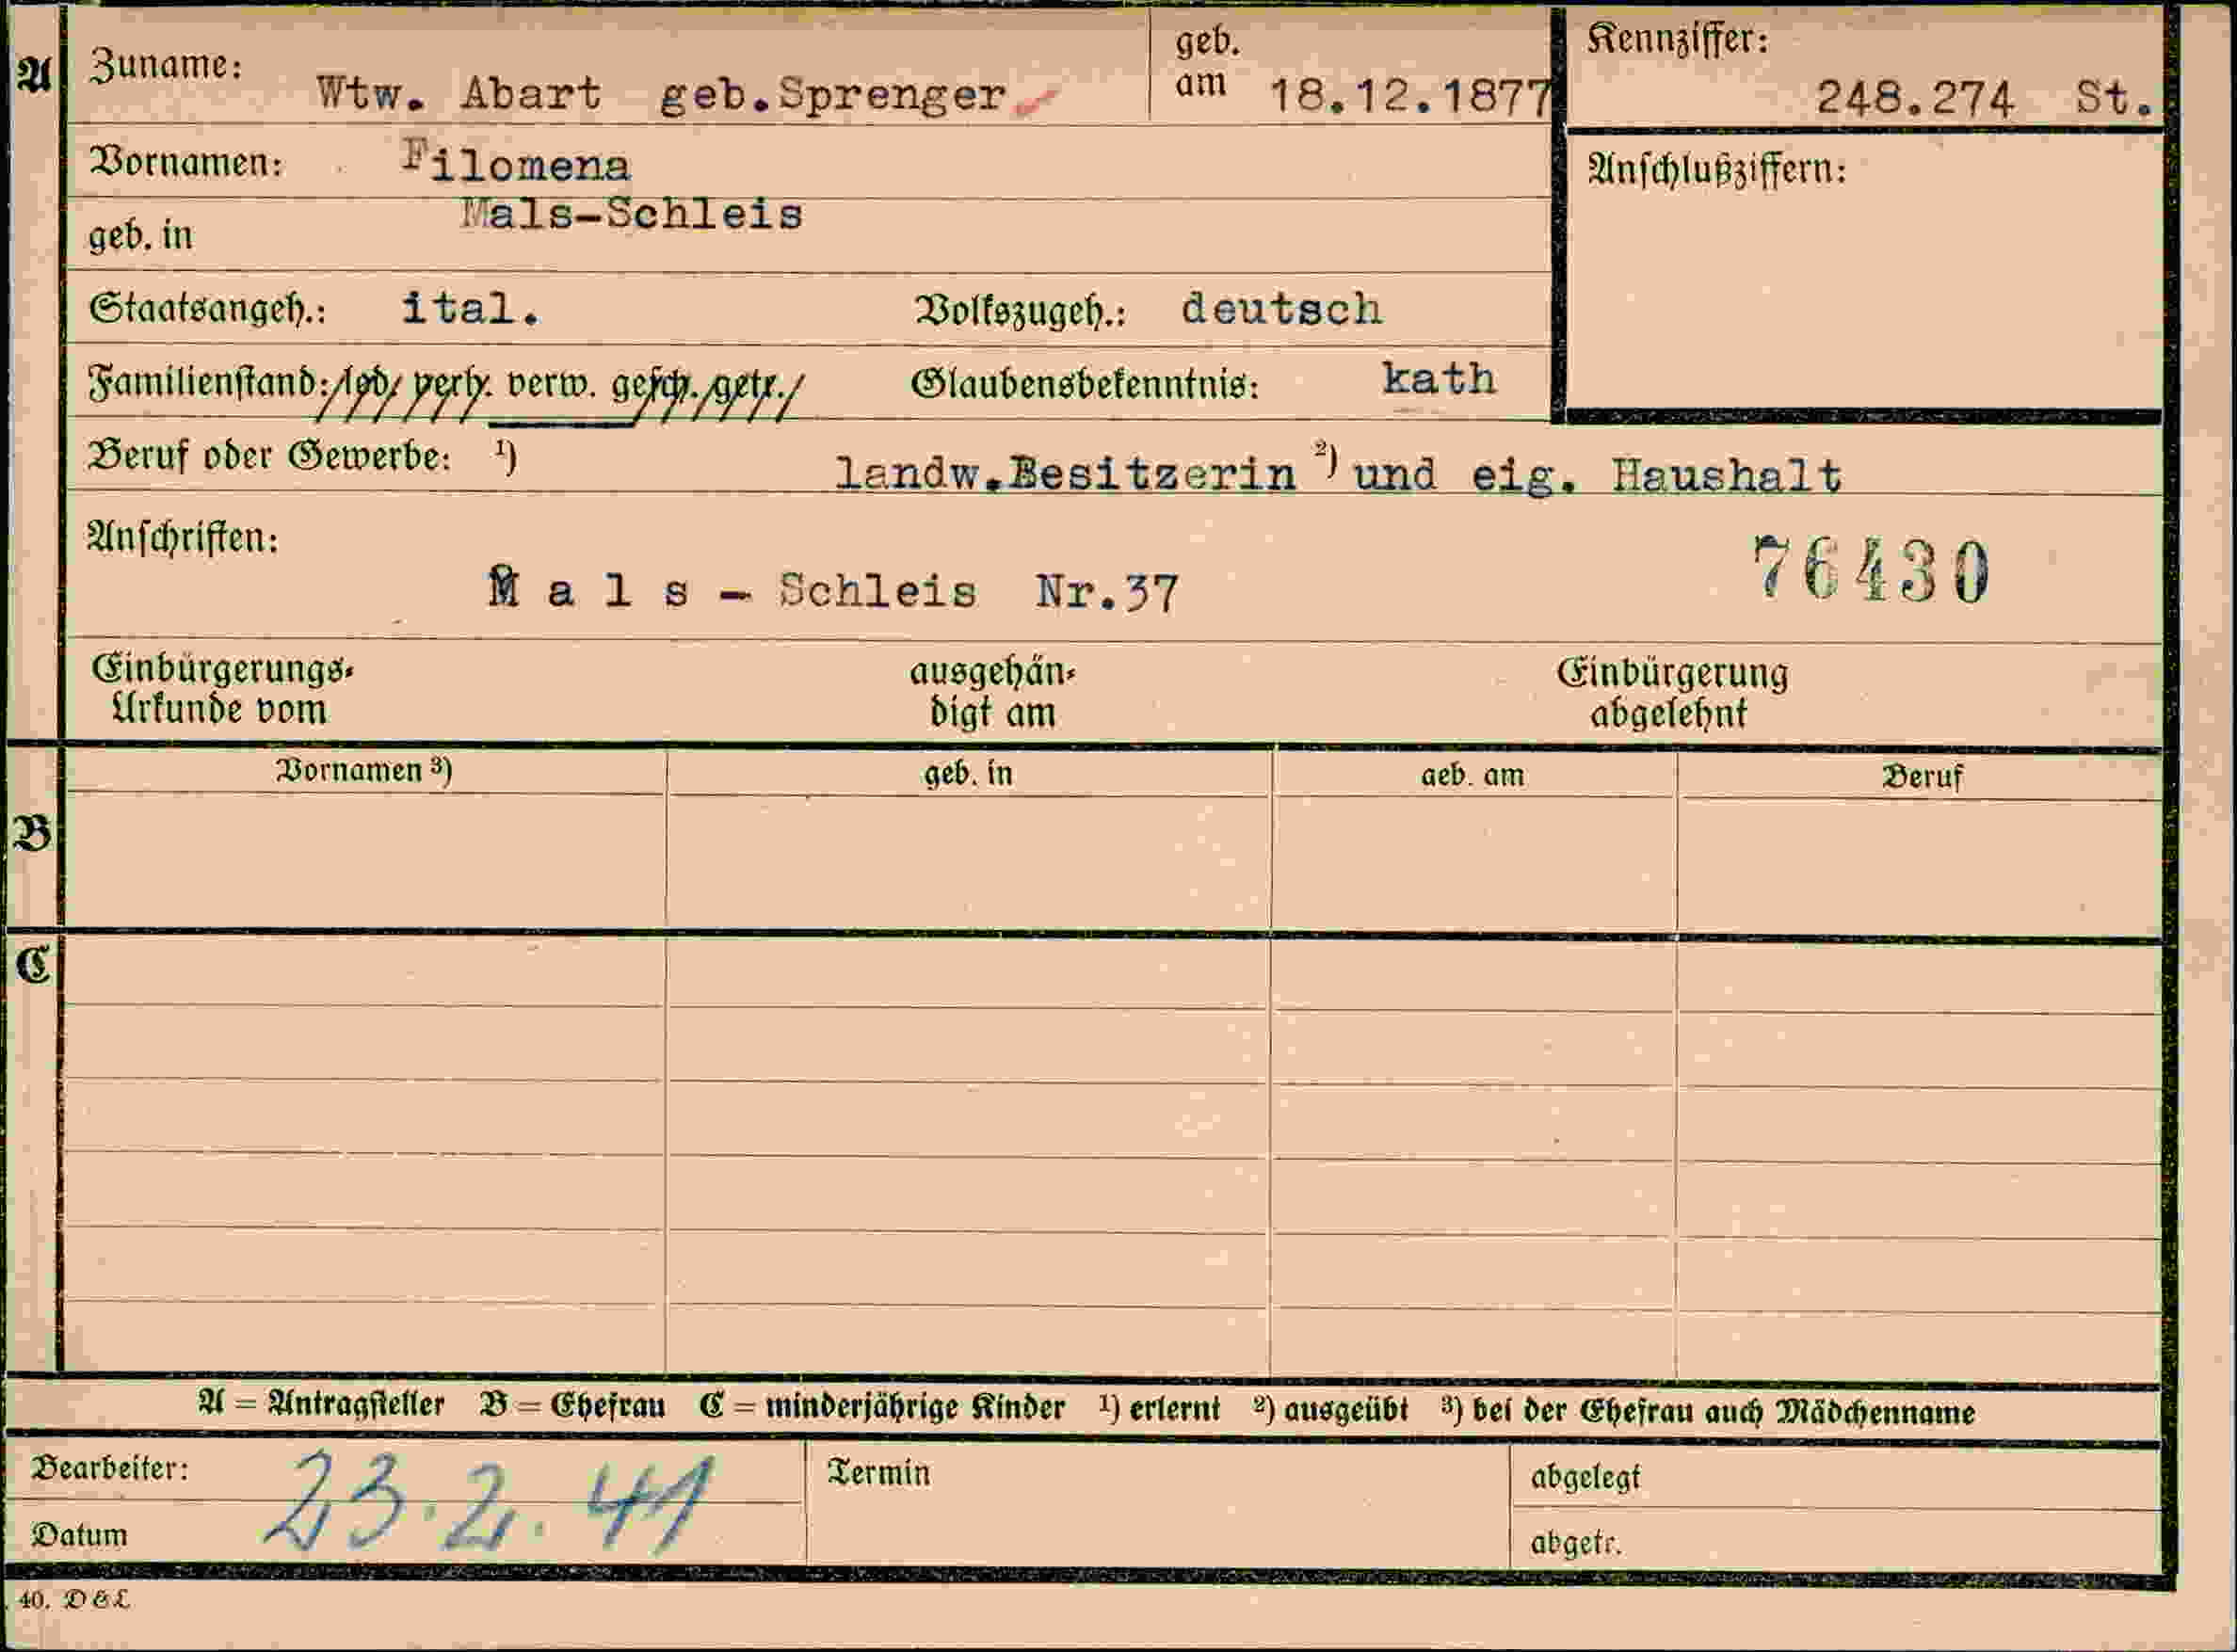 A Zuname: Wtw. Abart geb.Sprenger geb. am 18.12.1877 Kennziffer: 248.274 St.
Vornamen: Filomena Anschlußziffern:
geb. in Mals-Schleis
Staatsangeh.: ital. Volkszugeh.: deutsch
Familienstand: led. verh. verw. gesch. getr. Glaubensbekenntnis: kath
Beruf oder Gewerbe: ¹) landw.Besitzerin ²) und eig. Haushalt
Anschriften:
M a l s - Schleis Nr.37 76430
Einbürgerungs- ausgehän- Einbürgerung
Urkunde vom digt am abgelehnt
Vornamen ³) geb. in geb. am Beruf
B
C
A = Antragsteller B = Ehefrau C = minderjährige Kinder ¹) erlernt ²) ausgeübt ³) bei der Ehefrau auch Mädchenname
Bearbeiter: 23.2.41 Termin abgelegt
Datum abgetr.
40. D&L